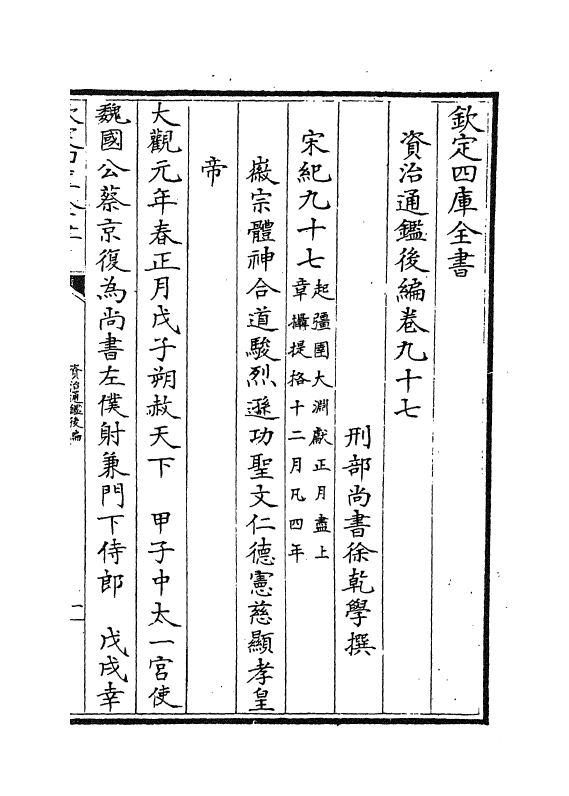 欽定四庫全書
資治通鑑後編卷九十七
刑部尚書徐乾學撰
宋紀九十七起彊圉大淵獻正月盡上
章攝提格十二月凡四年
嶶宗體神合道駿烈遜功聖文仁德憲慈顯孝皇
帝
大觀元年春正月戊子朔赦天下　甲子中太一宮使
魏國公蔡京復為尚書左僕射兼門下侍郎　戊戌幸
資治通鑑後編